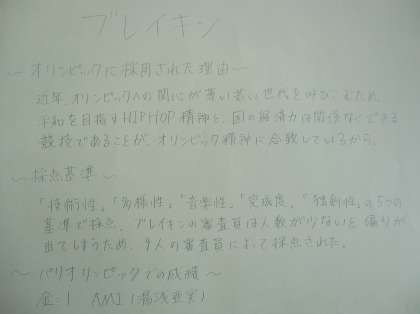 ブレイキン
～オリンピックに採用された理由～
近年、オリンピックへの関心が薄い若い世代を呼びこむため、
平和を目指すHIPHOP精神と、国の経済力は関係なくできる
競技であることが、オリンピック精神に合致しているから。
～採点基準～
「技術性」「多様性」「音楽性」「完成度」「独創性」の5つの
基準で採点。ブレイキンの審査員は人数が少ないと偏りが
出てしまうため、9人の審査員によって採点された。
～パリオリンピックでの成績～
金:1 AMI(湯浅亜実)